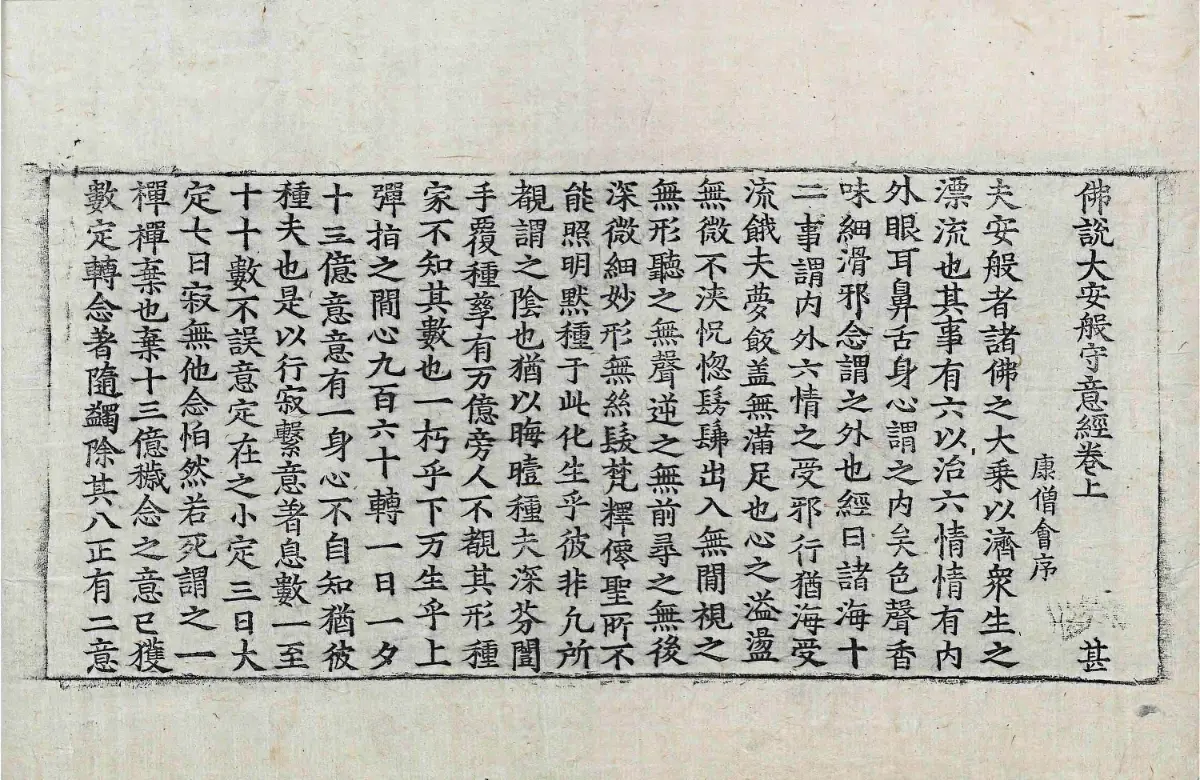 佛說大安般守意經卷上 甚
康僧會序
夫安般者諸佛之大乘以濟衆生之
漂流也其事有六以治六情情有內
外眼耳鼻舌身心謂之內矣色聲香
味細滑邪念謂之外也經曰諸海十
二事謂內外六情之受邪行猶海受
流餓夫夢飯盖無滿足也心之溢盪
無微不浹怳惚髣髴出入無閒視之
無形聽之無聲逆之無前尋之無後
深微細妙形無絲髮梵釋僊聖所不
能照明默種于此化生乎彼非凡所
覩謂之陰也猶以晦曀種夫深芬闓
手覆種孽有万億旁人不覩其形種
家不知其數也一朽乎下万生乎上
彈指之閒心九百六十轉一日一夕
十三億意意有一身心不自知猶彼
種夫也是以行寂繫意著息數一至
十十數不誤意定在之小定三日大
定七日寂無他念怕然若死謂之一
禪禪棄也棄十三億穢念之意已獲
數定轉念著隨蠲除其八正有二意